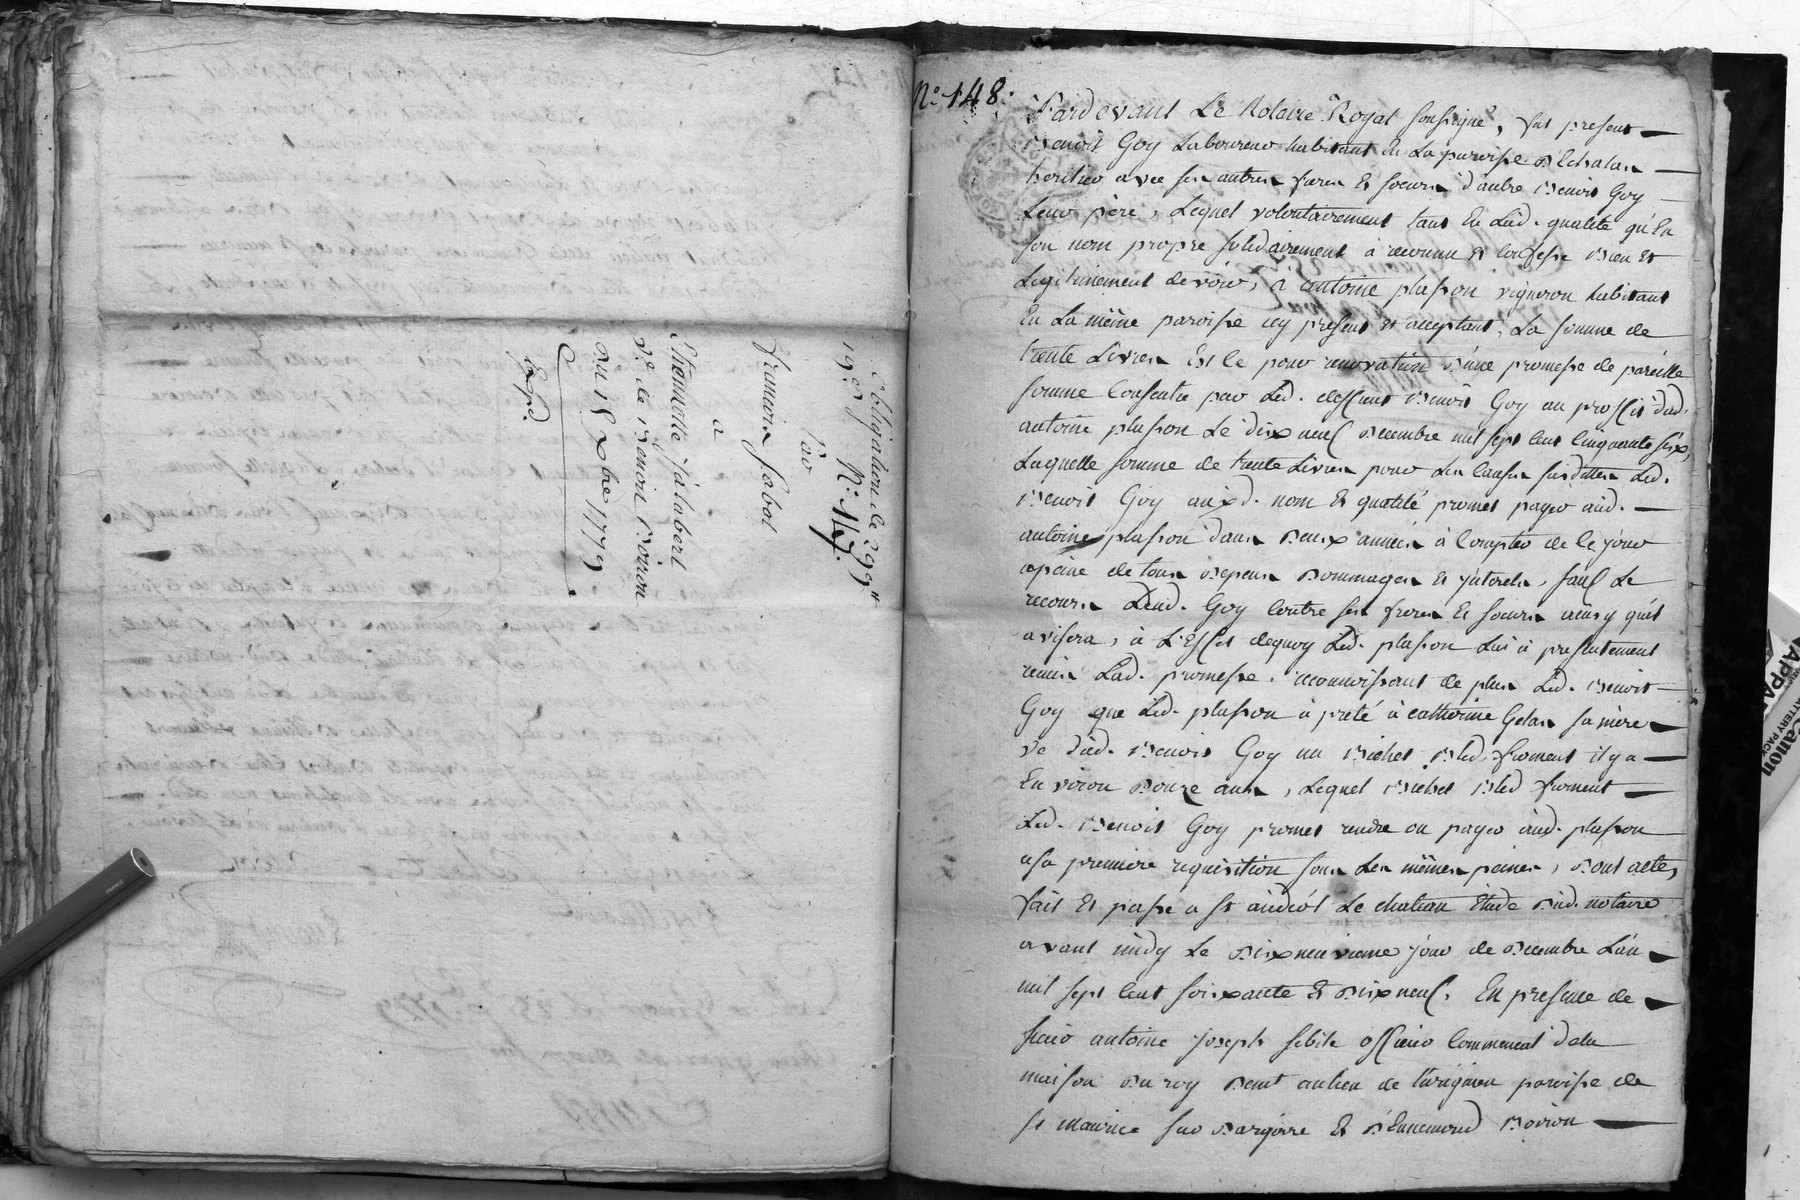 obligation de 299ᵗᵗ
19. Xbre N.° 147.
par
francois fabot
a
Etiennette Jalabert
ve de Benoit Boiron
du 18 xbre 1779
Expé.
N.° 148.
Pardevant Le Notaire Royal soussigné, fut present
Benoit Goy Laboureur habitant En La paroisse D'Echalas
heritier avec ses autres freres Et soeurs d'autre Benoit Goy
Leur père, Lequel volontairement tant En Lad. qualité qu'En
son nom propre solidairement à reconnu et confessé Bien Et
Legitimement devoir, à antoine plasson vigneron habitant
En La même paroisse icy present et acceptant, La somme de
trente Livres Et ce pour renovation D'une promesse de pareille
somme Consentie par Led. deffunt Benoit Goy au proffit dud.
antoine plasson Le dix neuf Decembre mil sept cent Cinquante six,
Laquelle somme de trente Livres pour Les Causes susdittes Led.
Benoit Goy auxd. nom Et qualité promet payer aud.
antoine plasson dans Deux années à Compter de ce jour
apeine de tous Depens Dommages Et jnterets, sauf Le
recours Dud. Goy Contre ses freres Et soeurs ainsy qu'il
avisera, à L'Effet dequoy Led. plasson Lui à presentement
remis Lad. promesse. reconnoissant de plus Led. Benoit
Goy que Led. plasson à preté à catherine Gelas sa mère
ve dud. Benoit Goy un Bichet Bled froment il y a
Environ Douze ans, Lequel Bichet Bled froment
Led. Benoit Goy promet rendre ou payer aud. plasson
asa premiere requisition sous Les mêmes peines, Dont acte,
fait Et passé a St andéol Le chateau Etude Dud. notaire
avant midy Le Dixneuvieme jour de Decembre L'an
mil sept cent soixante Et Dix neuf. En presence de
sieur antoine joseph sibile officier Commensal dela
maison Du roy Demt au lieu de paroisse de
St Maurice sur Dargoire Et D'Ennemond Boiron